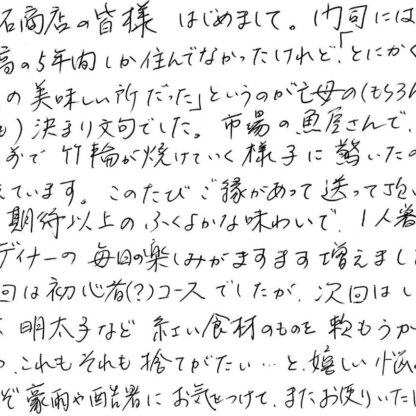 石商店の皆様 はじめまして。門司には
高の5年間しか住んでなかったけれど、「とにかく
の美味しい所だった」というのが亡母の(もちろん
も)決まり文句でした。市場の魚屋さんで、
おで竹輪が焼けていく様子に驚いたの
えています。このたびご縁があって送って頂い
期待以上のふくよかな味わいで、1人暮
ディナーの毎日の楽しみがますます増えまし
回は初心者(?)コースでしたが、次回はし
明太子など紅い食材のものを頼もうか
、これもそれも捨てがたい…と、嬉しい悩み
ぞ豪雨や酷暑にお気をつけて、またお便りいた